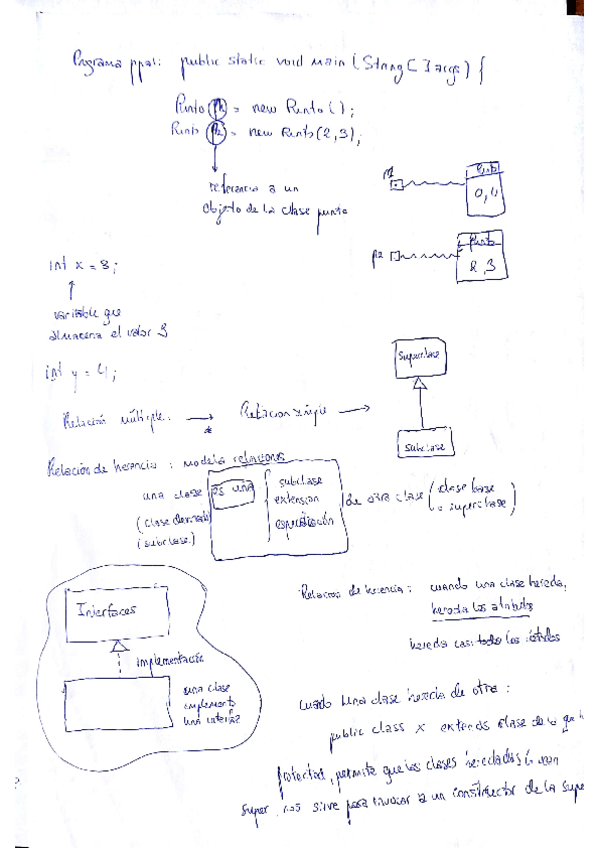 Programa ppal: public static void main (String [] args) {
Punto p1 = new Punto ();
Punto p2 = new Punto (2,3);
referencia a un
objeto de la clase punto
p1
Punto
0,4
p2
Punto
2,3
int x = 3;
variable que
almacena el valor 3
int y = 4;
Superclase
Relación múltiple
*
Relacion simple
subclase
Relación de herencia : modela relaciones
una clase es una subclase
extension
especificación
de otra clase (clase base
o superclase)
(clase derivada)
(subclase)
Interfaces
implementación
una clase
implementa
una interfaz
Relacion de herencia : cuando una clase hereda,
hereda los atributos
hereda casi todos los
cuando una clase hereda de otra :
public class x extends clase de la que
protected, permite que las clases heredadas
super, nos sirve para invocar a un constructor de la supe